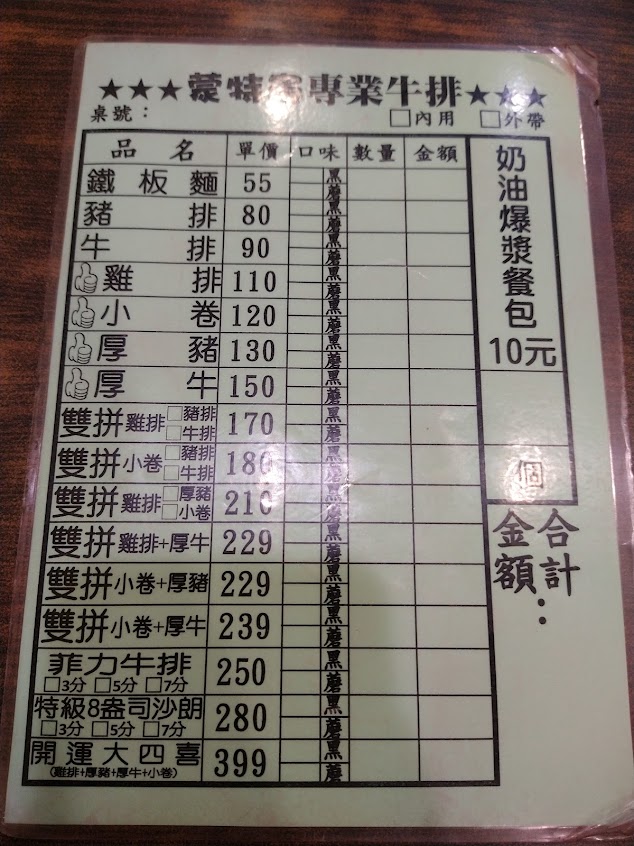 ★★★蒙特 專業牛排★★★
桌號： □內用 □外帶
品名 單價 口味 數量 金額
鐵板麵 55 黑 蘑
豬排 80 黑 蘑
牛排 90 黑 蘑
雞排 110 黑 蘑
小卷 120 黑 蘑
厚豬 130 黑 蘑
厚牛 150 黑 蘑
雙拼雞排 □豬排 □牛排 170 黑 蘑
雙拼小卷 □豬排 □牛排 180 黑 蘑
雙拼雞排 □厚豬 □小卷 210 黑 蘑
雙拼雞排+厚牛 229 黑 蘑
雙拼小卷+厚豬 229 黑 蘑
雙拼小卷+厚牛 239 黑 蘑
菲力牛排 250 黑 蘑
□3分 □5分 □7分
特級8盎司沙朗 280 黑 蘑
□3分 □5分 □7分
開運大四喜 399 黑 蘑
(雞排+厚豬+厚牛+小卷)
奶油爆漿餐包
10元
個
合計
金額：